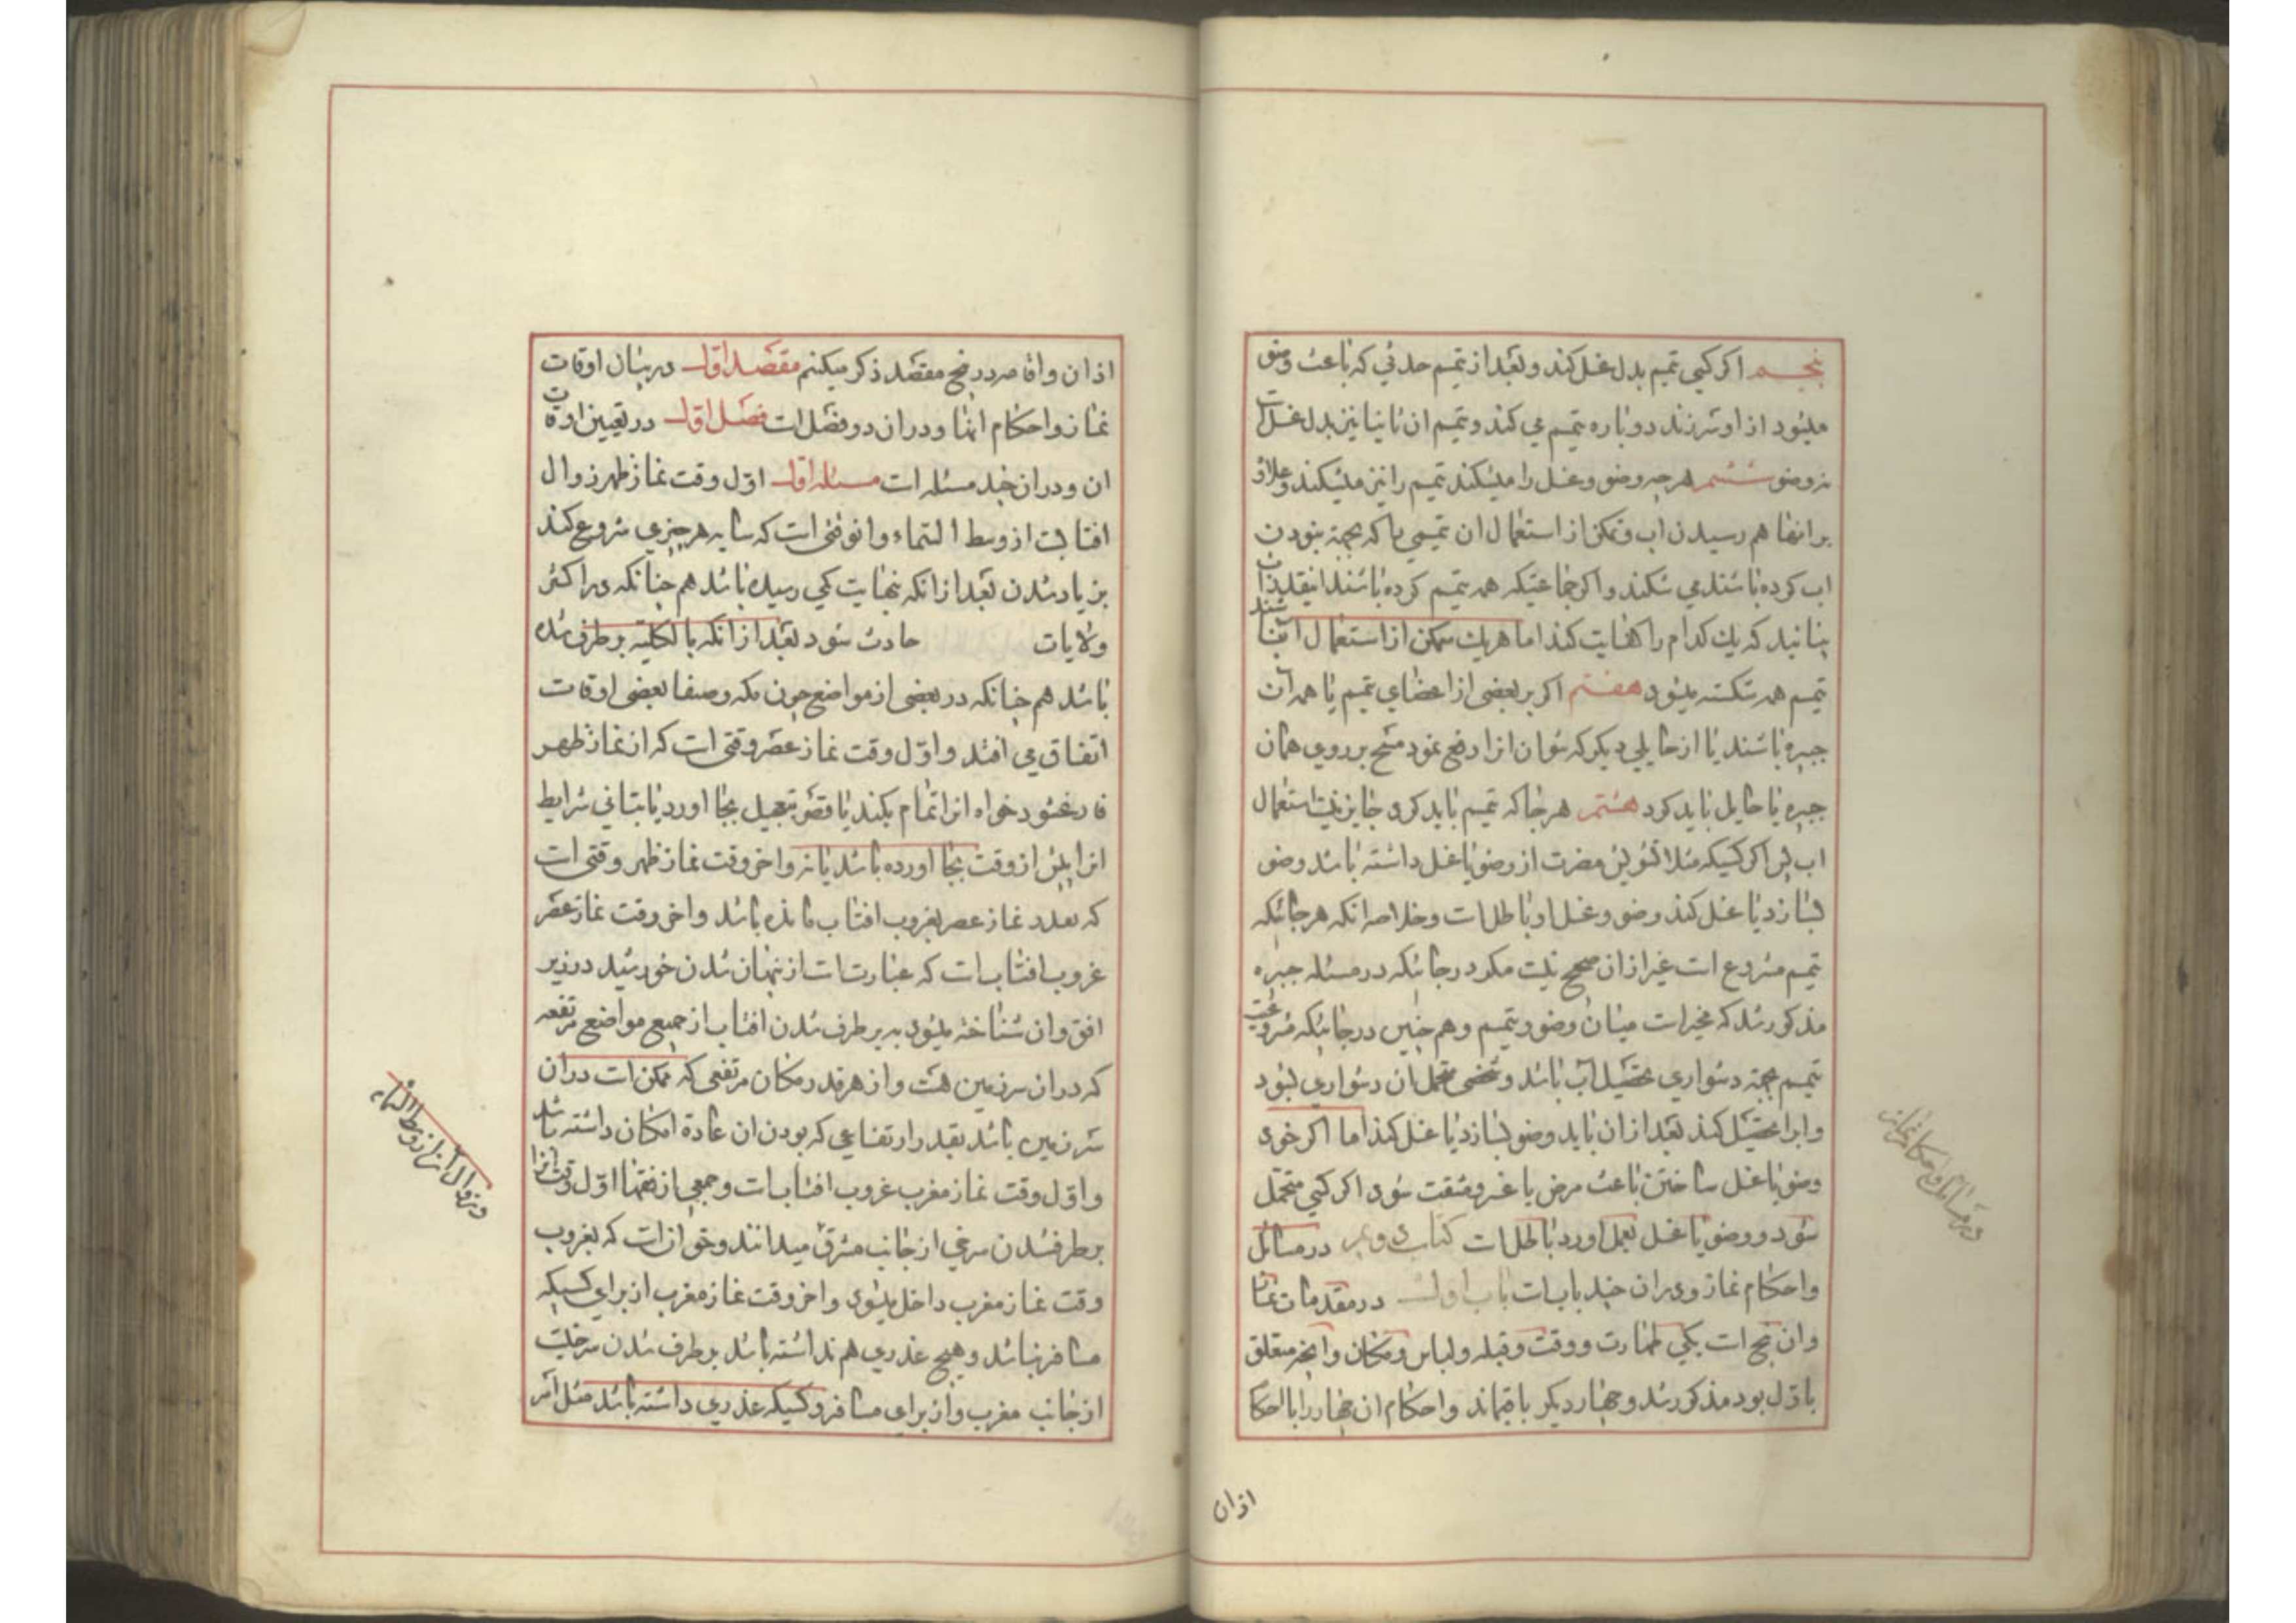 پنجم اکر کسی تیمم بدل غسل کند و بعد از تیمم حدثی که باعث وضو
میشود از او سر زند دوباره تیمم می کند و تیمم ان ثانیا نیز بدل غسل است
نه وضو ششم هر چه وضو و غسل را میشکند تیمم را نیز میشکند و علاوه
بر انها هم رسیدن اب و تمکن از استعمال ان تیممی را که بجهة نبودن
اب کرده باشند می شکند و اکر جماعتیکه همه تیمم کرده باشند اینقدر اب
بیابند که یك کدام را کفایت کند اما هریك متمکن از استعمال ان باشند
تیمم همه شکسته میشود هفتم اکر بر بعضی از اعضای تیمم یا همه ان
جبیره باشند یا از حایلی دیکر که نتوان انرا رفع نمود مسح بر روی همان
جبیره یا حایل باید کرد هشتم هر جا که تیمم باید کرد جایز نیست استعمال
اب پس اکر کسیکه مثلا تشویش مضرت از وضو یا غسل داشته باشد وضو
بسازد یا غسل کند وضو و غسل او باطل است و خلاصه انکه هر جائیکه
تیمم مشروع است غیر از ان صحیح نیست مکر در جائیکه در مسئله جبیره
مذکور شد که مخیر است میان وضو و تیمم و هم چنین در جائیکه مشروعیت
تیمم بجهة دشواری تحصیل آب باشد و شخصی متحمل ان دشواری بشود
و ابرا تحصیل کند بعد از ان باید وضو بسازد یا غسل کند اما اکر خود
وضو یا غسل ساختن باعث مرض یا عسر و مشقت شود اکر کسی متحمل
شود و وضو یا غسل بعمل اورد باطل است کتاب دویم در مسائل
و احکام نماز و در ان چند باب است باب اول در مقدمات نماز
و ان پنج است یکی طهارت و وقت و قبله و لباس و مکان و انچه متعلق
باول بود مذکور شد و چهار دیکر باقیماند و احکام ان چهار را با احکا
اذان
در مسائل و احکام نماز است
اذان و اقامه در پنج مقصد ذکر میکنم مقصد اول در بیان اوقات
نماز و احکام انها و در ان دو فصل است فصل اول در تعیین اوقات
ان و در ان چند مسئله است مسئله اول اول وقت نماز ظهر زوال
افتاب است از وسط السماء و ان وقتی است که سایه هر چیزی شروع کند
بزیاد شدن بعد از انکه بنهایت کمی رسیده باشد هم چنانکه در اکثر
ولایات حادث شود بعد از انکه بالکلیه بر طرف شده
باشد هم چنانکه در بعضی از مواضع چون مکه و صنعا بعضی اوقات
اتفاق می افتد و اول وقت نماز عصر وقتی است که از نماز ظهر
فارغ شود خواه انرا تمام بکند یا قصر بتعجیل بجا اورد یا بتانی شرایط
انرا پیش از وقت بجا اورده باشد یا نه و اخر وقت نماز ظهر وقتی است
که بقدر نماز عصر بغروب افتاب مانده باشد و اخر وقت نماز عصر
غروب افتاب است که عبارت است از پنهان شدن خورشید در زیر
افق و ان شناخته میشود به بر طرف شدن افتاب از جمیع مواضع مرتفعه
که در ان سرزمین هست و از هر قدر مکان مرتفعی که ممکن است در ان
سرزمین باشد بقدر ارتفاعی که بودن ان عادة امکان داشته باشد
و اول وقت نماز مغرب غروب افتاب است و جمعی از فقها اول وقت انرا
بر طرف شدن سرخی از جانب مشرق میدانند و حق ان است که بغروب
وقت نماز مغرب داخل میشود و اخر وقت نماز مغرب از برای کسیکه
مسافر نباشد و هیچ عذری هم نداشته باشد بر طرف شدن سرخیست
از جانب مغرب و از برای مسافر و کسیکه عذری داشته باشد مثل انتر
و زوال آن از وسط السماء